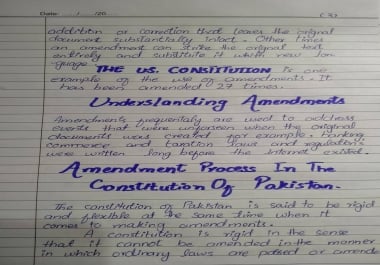 Date: / /20
addition or correction that leaves the original
document substantially intact. Other times
an amendment can strike the original text
entirely and substitute it with new lan-
guage.
THE U.S. CONSTITUTION is one
example of the use of amendments. It
has been amended 27 times.
Understanding Amendments
Amendments frequently are used to address
events that were unforseen when the original
documents was created for example. Banking
commerce and taxation laws and regulations
were written long before the internet existed.
Amendment Process In The
Constitution Of Pakistan.
The constitution of Pakistan is said to be rigid
and flexible at the same time when it
comes to making amendments.
A constitution is rigid in the sense
that it cannot be amended in the manner
in which ordinary laws are passed or amende